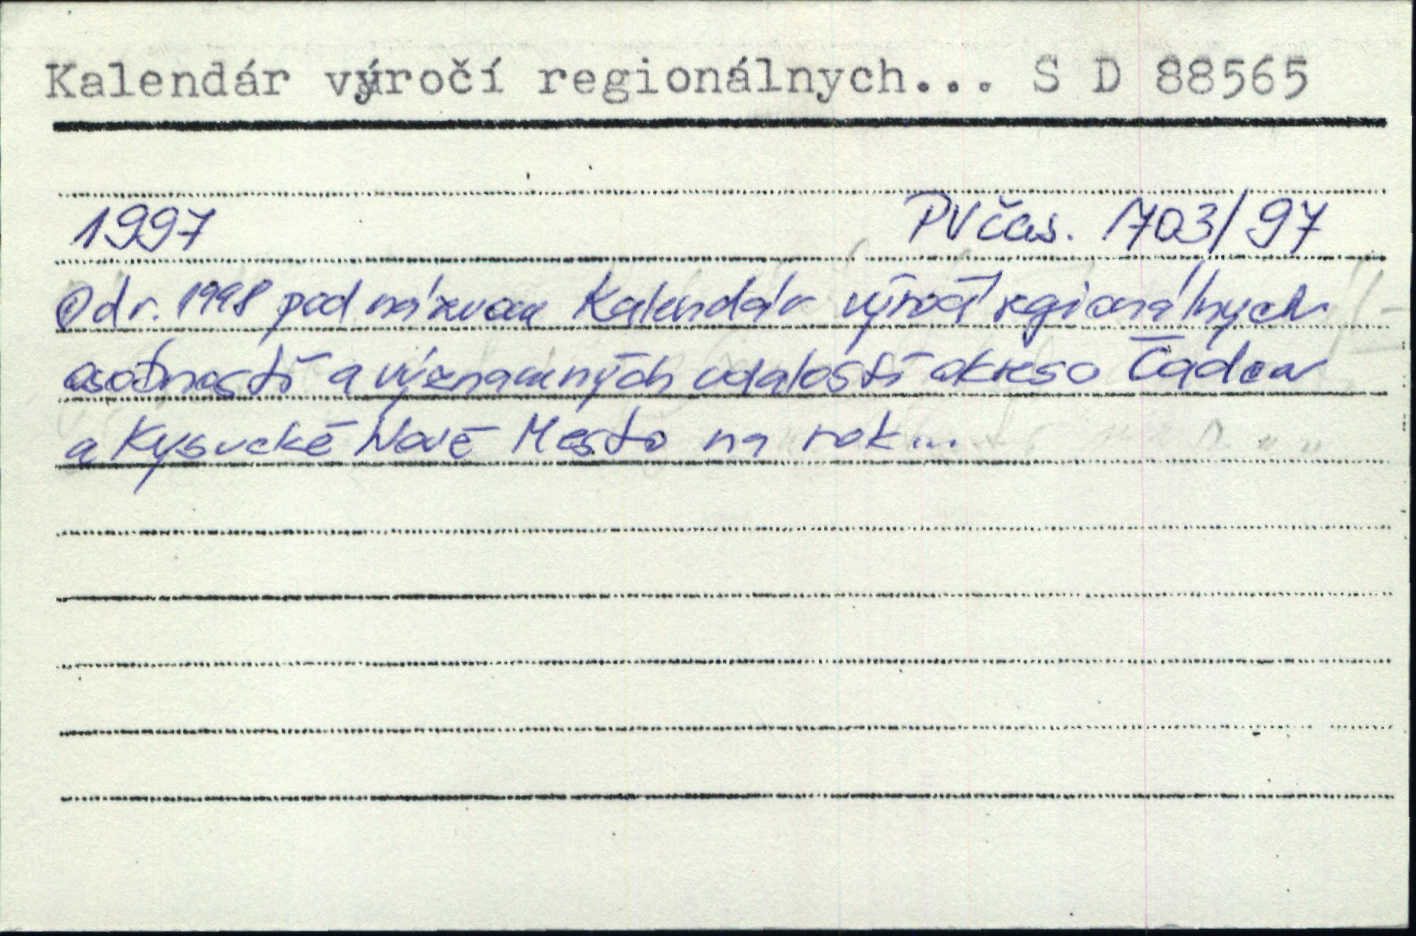 Kalendár výročí regionálnych... S D 88565
1997 PV čas. 1703/97
Od r. 1998 pod názvom Kalendár výročí regionálnych
osobností a významných udalostí okreso Čadca
a Kysucké Nové Mesto na rok...